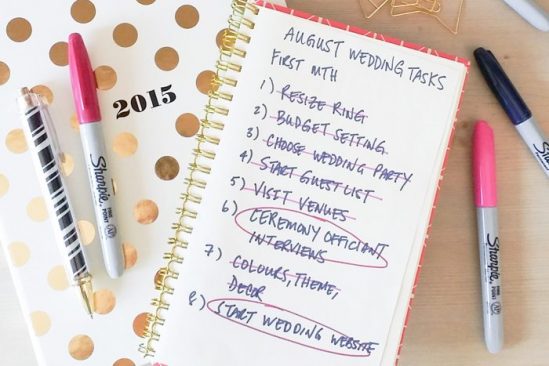 2015
AUGUST WEDDING TASKS
FIRST MTH
1) RESIZE RING
2) BUDGET SETTING
3) CHOOSE WEDDING PARTY
4) START GUEST LIST
5) VISIT VENUES
6) CEREMONY OFFICIANT
INTERVIEWS
7) COLOURS, THEME,
DECOR
8) START WEDDING WEBSITE
Sharpie
Sharpie
Sharpie